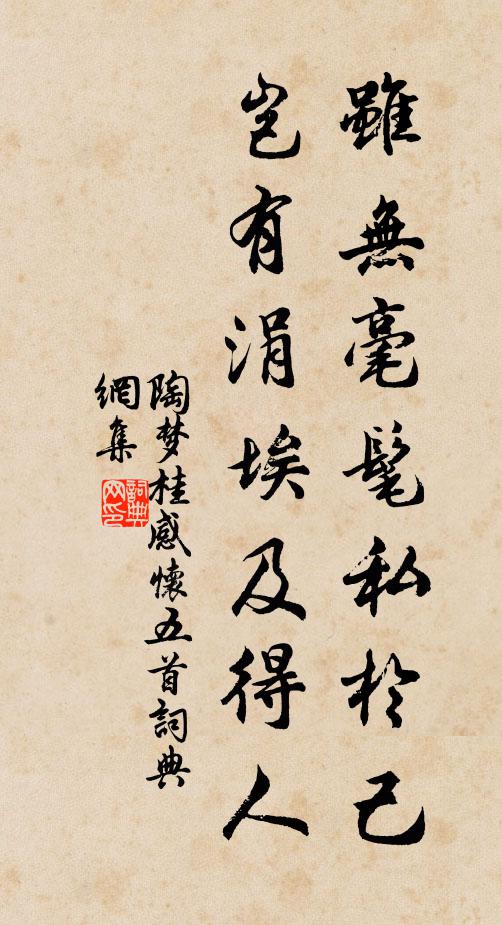 雖無毫髦私於己
豈有涓埃及得人
陶梦桂感懷五首詞典
網集
詞典網印